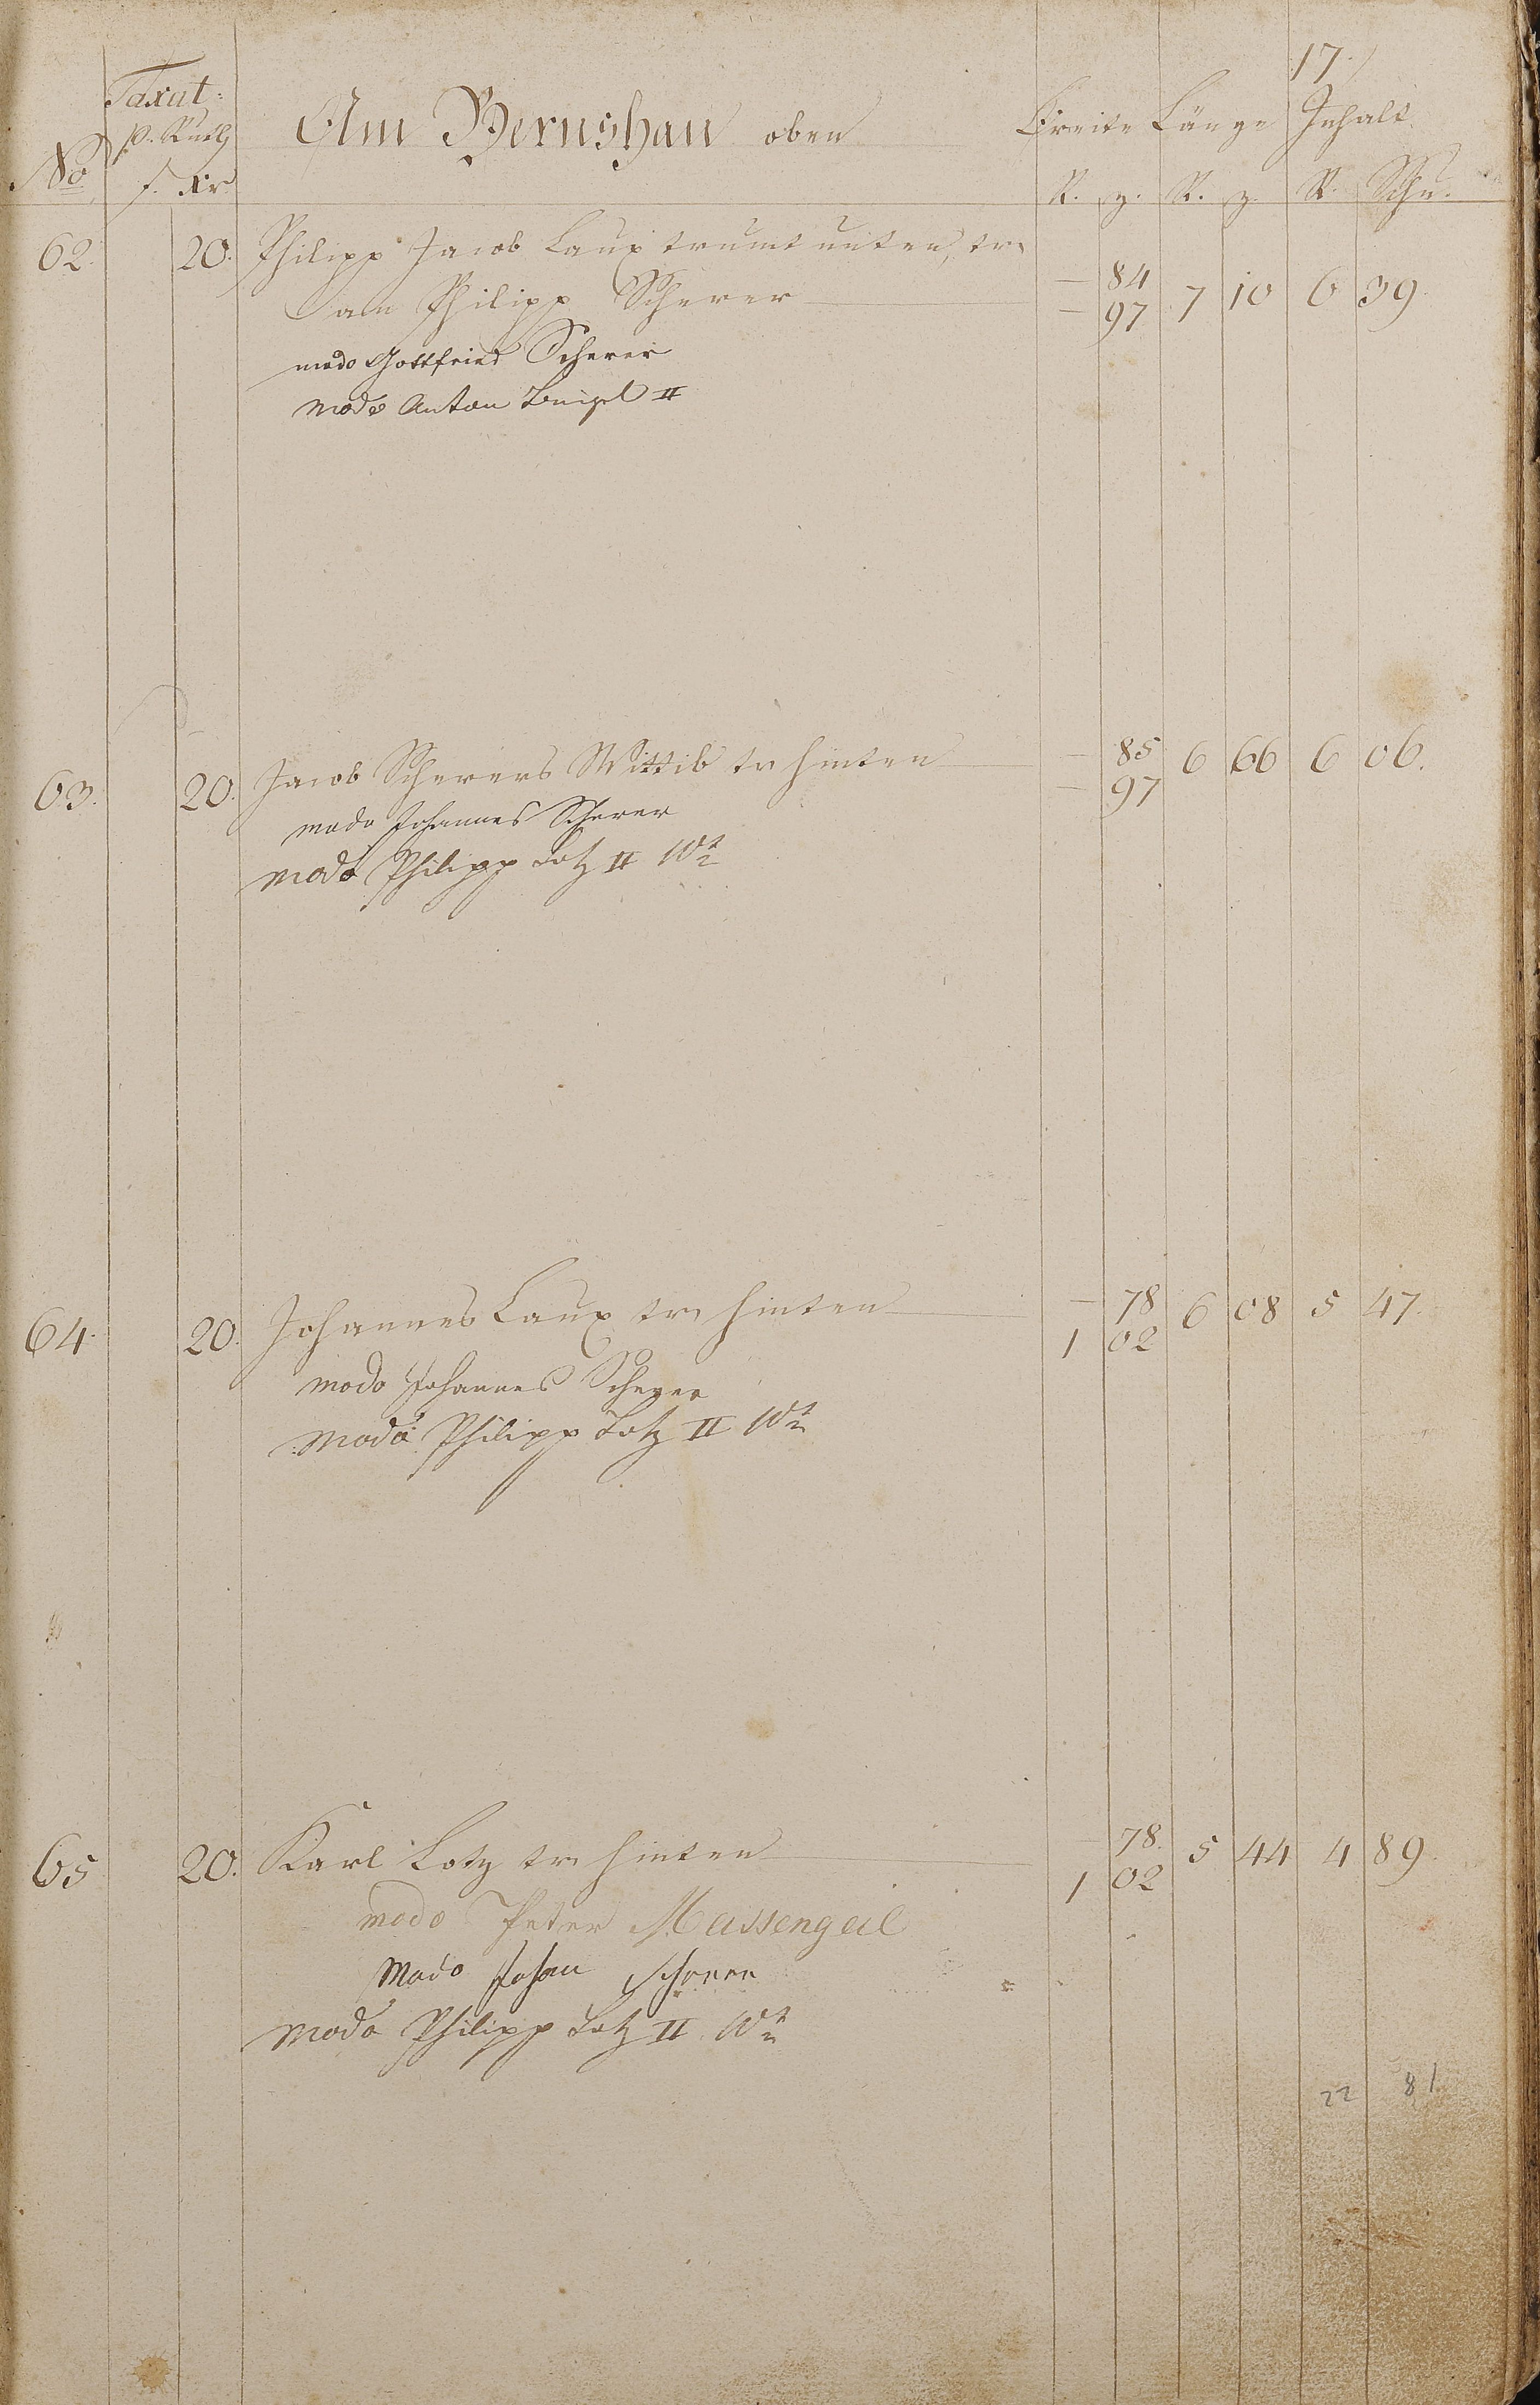 17.
Taxat:
p. Ruth
No
f. Xr
Am Bernshau oben
Breite Länge Inhalt
R. z. R. z. R. Schu.
62. 20. Philipp Jacob Laux trumt unten, tr.
am Philipp Scherer — 84 7 10 6 39.
— 97
modo Gottfried Scherer
modo Anton II
63. 20. Jacob Scherers Wittib tr hinten — 85 6 66 6 06.
— 97
modo Johannes Scherer
modo Philipp Lotz II Wt
64. 20. Johannes Laux tr. hinten — 78 6 08 5 47.
1 02
modo Johannes Scherer
modo Philipp Lotz II Wt
65 20. Karl Lotz tr. hinten — 78. 5 44 4 89.
1 02
modo Peter Massengeil
modo Johan Scherer
modo Philipp Lotz II Wt
22 81